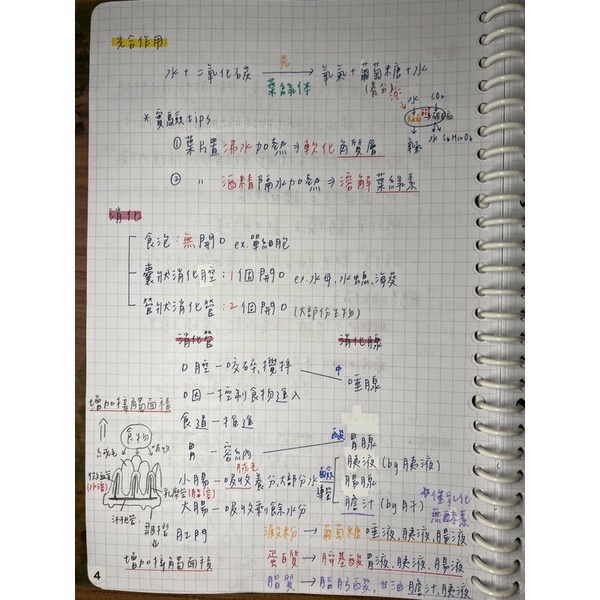 光合作用
水 + 二氧化碳 光 葉綠体 → 氧氣 + 葡萄糖 + 水
(養分)
水 CO₂
氧氣 水 C₆H₁₂O₆
* 實驗 tips
① 葉片置沸水加熱 → 軟化角質層
② 〃 酒精隔水加熱 ⇒ 溶解葉綠素
消化
食泡：無開口 ex. 單細胞
囊狀消化腔：1個開口 ex. 水母、水螅、海葵
管狀消化管：2個開口 (大部份生物)
消化管 消化腺
口腔－咬碎、攪拌 中 唾腺
口因－控制食物進入
食道－推進
胃－容納 酸 胃腺
小腸－吸收養分、大部分水
絨毛
大腸－吸收剩餘水分
肛門
鹼
胰液 (by 胰液)
腸腺
膽汁 (by 肝)
僅乳化
無酵素
增加接觸面積
食物
絨毛 吸收
微血管
(水溶)
乳糜管 (脂溶)
皺摺
增加接觸面積
澱粉 → 葡萄糖 唾液、胰液、腸液
蛋白質 → 胺基酸 胃液、胰液、腸液
脂質 → 脂肪酸、甘油 膽汁、胰液
4